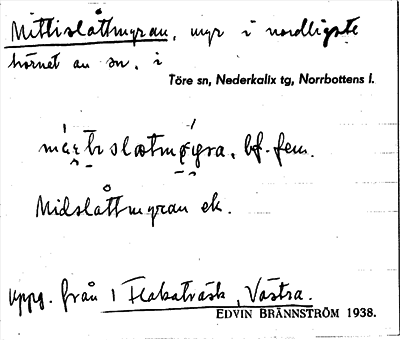 Mittislåttmyran, myr i nordligste
hörnet av sn. i
Töre sn, Nederkalix tg, Norrbottens l.
bf. fem.
Midslåttmyran ek.
uppg. från 1 Flakaträsk, Västra.
EDVIN BRÄNNSTRÖM 1938.